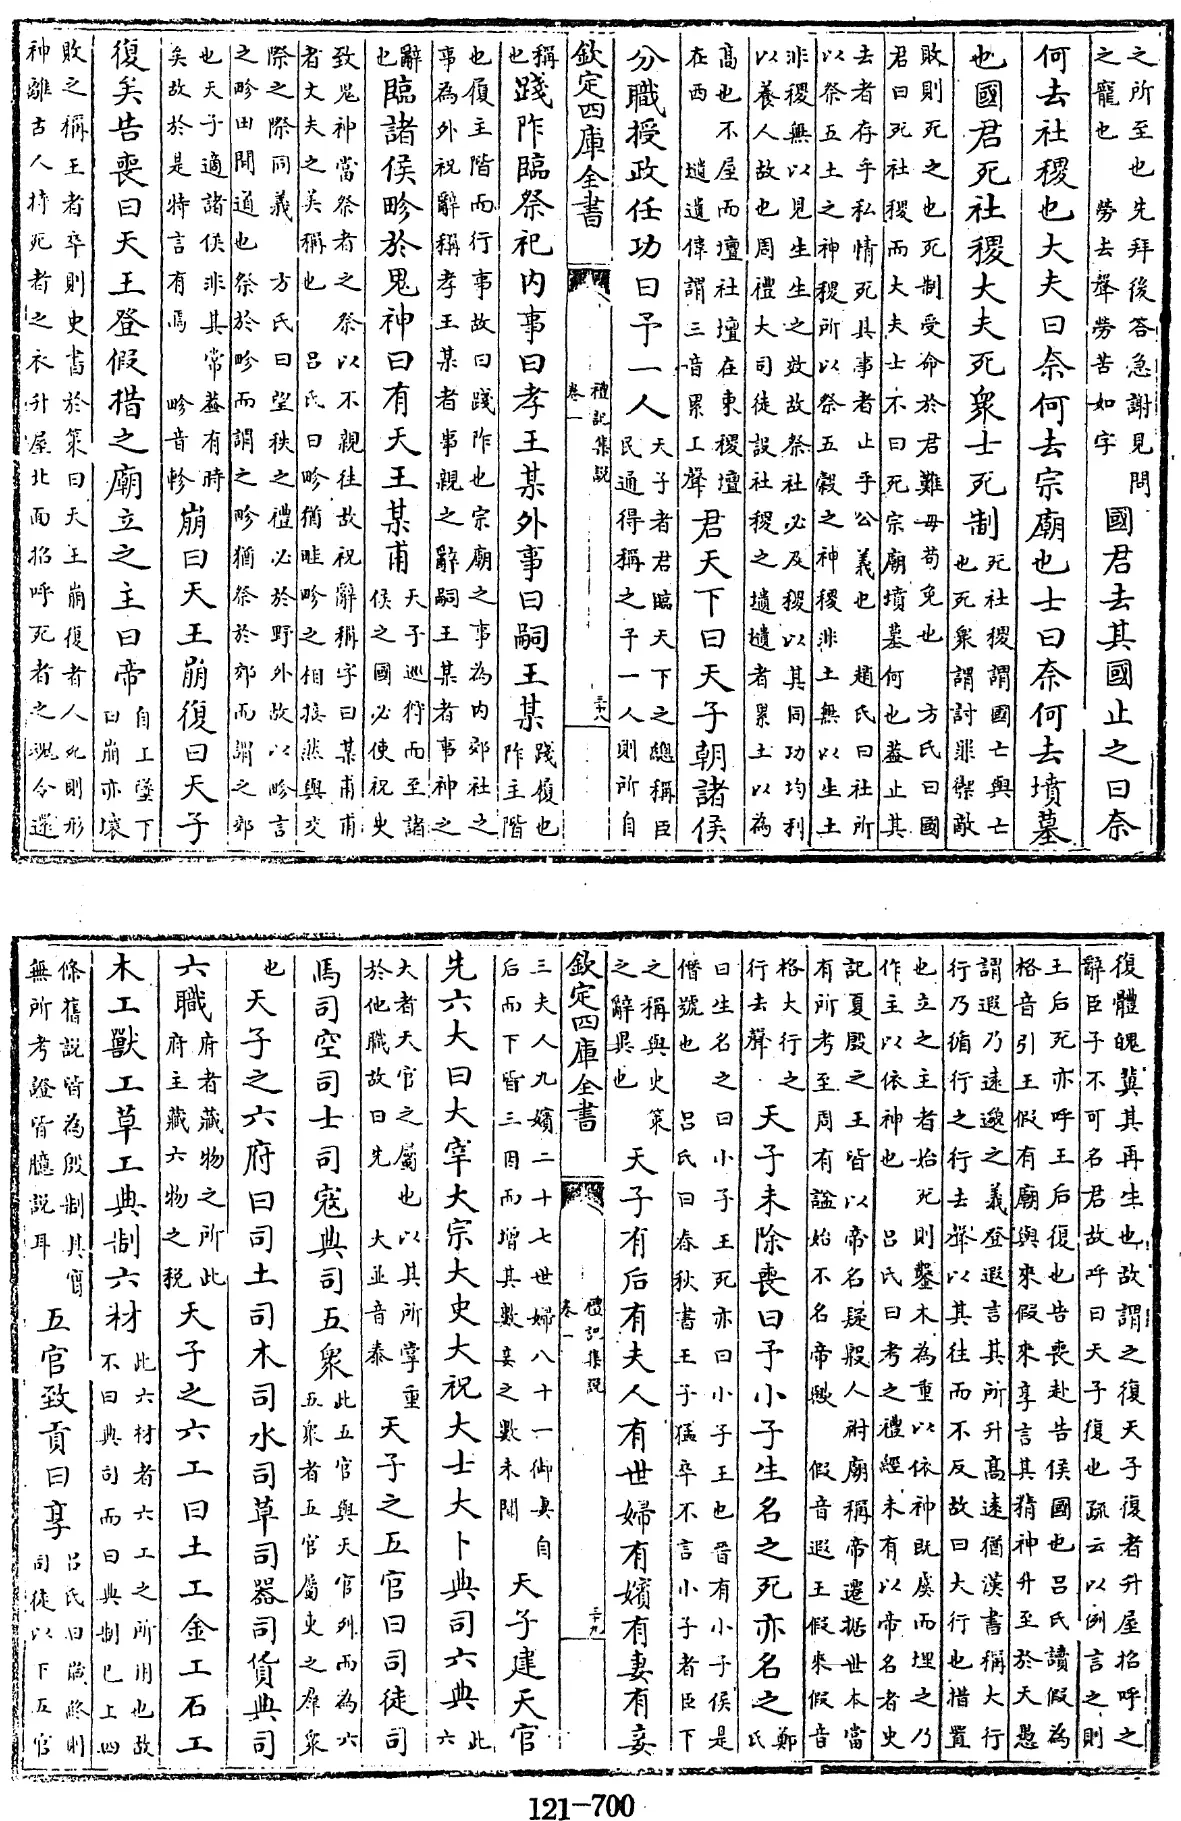 之所至也先拜後答急謝見問
之寵也　勞去聲勞苦如字
國君去其國止之曰奈
何去社稷也大夫曰奈何去宗廟也士曰奈何去墳墓
也國君死社稷大夫死衆士死制
死社稷謂國亡與亡
也死衆謂討罪禦敵
敗則死之也死制受命於君難毋苟免也　方氏曰國
君曰死社稷而大夫士不曰死宗廟墳墓何也蓋止其
去者存乎私情死其事者止乎公義也　趙氏曰社所
以祭五土之神稷所以祭五穀之神稷非土無以生土
非稷無以見生生之效故祭社必及稷以其同功均利
以養人故也周禮大司徒設社稷之壝壝者累土以為
高也不屋而壇社壇在東稷壇
在西　壝遺偉謂三音累工聲
君天下曰天子朝諸侯
分職授政任功曰予一人
天子者君臨天下之總稱臣
民通得稱之予一人則所自
欽定四庫全書
禮記集說
卷一
三十八
稱
也
踐阼臨祭祀内事曰孝王某外事曰嗣王某
踐履也
阼主階
也履主階而行事故曰踐阼也宗廟之事為内郊社之
事為外祝辭稱孝王某者事親之辭嗣王某者事神之
辭
也
臨諸侯畛於鬼神曰有天王某甫
天子巡狩而至諸
侯之國必使祝史
致鬼神當祭者之祭以不親往故祝辭稱字曰某甫甫
者丈夫之美稱也　呂氏曰畛猶畦畛之相接然與交
際之際同義　方氏曰望秩之禮必於野外故以畛言
之畛田間道也祭於畛而謂之畛猶祭於郊而謂之郊
也天子適諸侯非其常蓋有時
矣故於是特言有焉　畛音軫
崩曰天王崩復曰天子
復矣告喪曰天王登假措之廟立之主曰帝
自工墜下
曰崩亦壞
敗之稱王者卒則史書於策曰天王崩復者人死則形
神離古人持死者之衣升屋北面招呼死者之魂令還
復體魄冀其再生也故謂之復天子復者升屋招呼之
辭臣子不可名君故呼曰天子復也疏云以例言之則
王后死亦呼王后復也告喪赴告侯國也呂氏讀假為
格音引王假有廟與來假來享言其精神升至於天愚
謂遐乃遠邈之義登遐言其所升高遠猶漢書稱大行
行乃循行之行去聲以其往而不反故曰大行也措置
也立之主者始死則鑿木為重以依神既虞而埋之乃
作主以依神也　呂氏曰考之禮經未有以帝名者史
記夏殷之王皆以帝名疑殷人祔廟稱帝遷据世本當
有所考至周有諡始不名帝歟　假音遐王假來假音
格大行之
行去聲
天子未除喪曰予小子生名之死亦名之
鄭
氏
曰生名之曰小子王死亦曰小子王也晉有小子侯是
僭號也　呂氏曰春秋書王子猛卒不言小子者臣下
之稱與史策
之辭異也
天子有后有夫人有世婦有嬪有妻有妾
欽定四庫全書
禮記集說
卷一
三十九
三夫人九嬪二十七世婦八十一御妻自
后而下皆三因而增其數妾之數未聞
天子建天官
先六大曰大宰大宗大史大祝大士大卜典司六典
此
六
大者天官之屬也以其所掌重
於他職故曰先　大並音泰
天子之五官曰司徒司
馬司空司士司寇典司五衆
此五官與天官列而為六
五衆者五官屬吏之羣衆
也
天子之六府曰司土司木司水司草司器司貨典司
六職
府者藏物之所此
府主藏六物之税
天子之六工曰土工金工石工
木工獸工草工典制六材
此六材者六工之所用也故
不曰典司而曰典制巳上四
條舊說皆為殷制其實
無所考證皆臆説耳
五官致貢曰享
呂氏曰歲終則
司徒以下五官
121-700